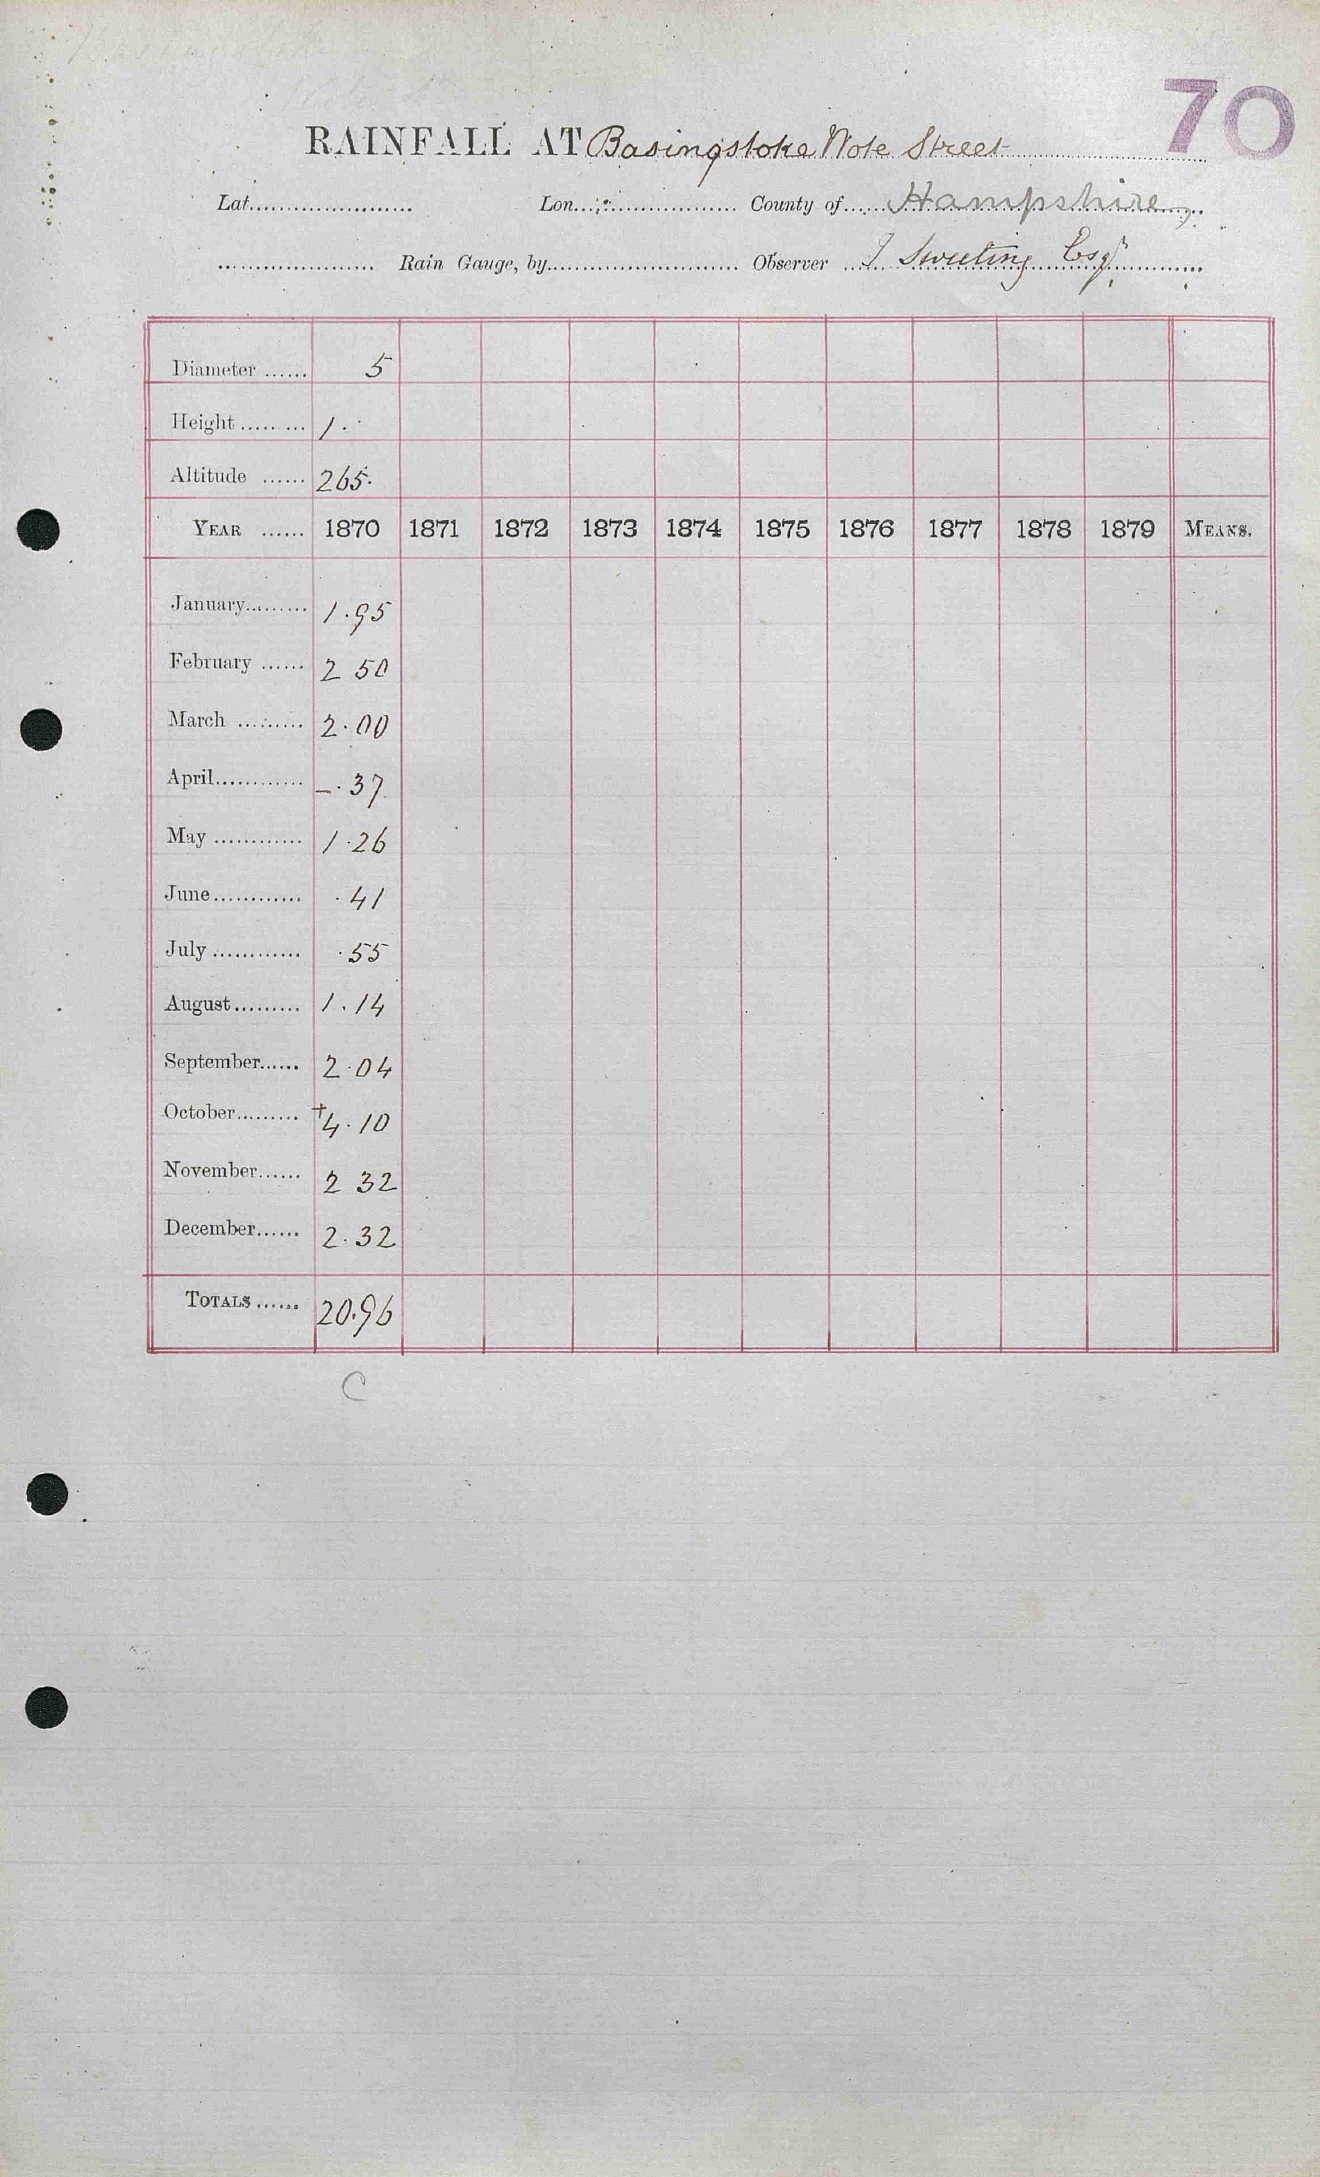 70
RAINFALL AT Basingstoke Wote Street
Lat..................... Lon..................... County of...... Hampshire,
.................... Rain Gauge, by......................... Observer ...... Sweeting Esqr
Diameter ...... 5
Height ......... 1.
Altitude ...... 265.
YEAR ...... 1870 1871 1872 1873 1874 1875 1876 1877 1878 1879 MEANS.
January......... 1.95
February ...... 2 50
March ......... 2.00
April............ —.37
May ............ 1.26
June............ .41
July ............ .55
August......... 1.14
September...... 2.04
October......... +4.10
November...... 2 32
December...... 2.32
TOTALS ...... 20.96
C